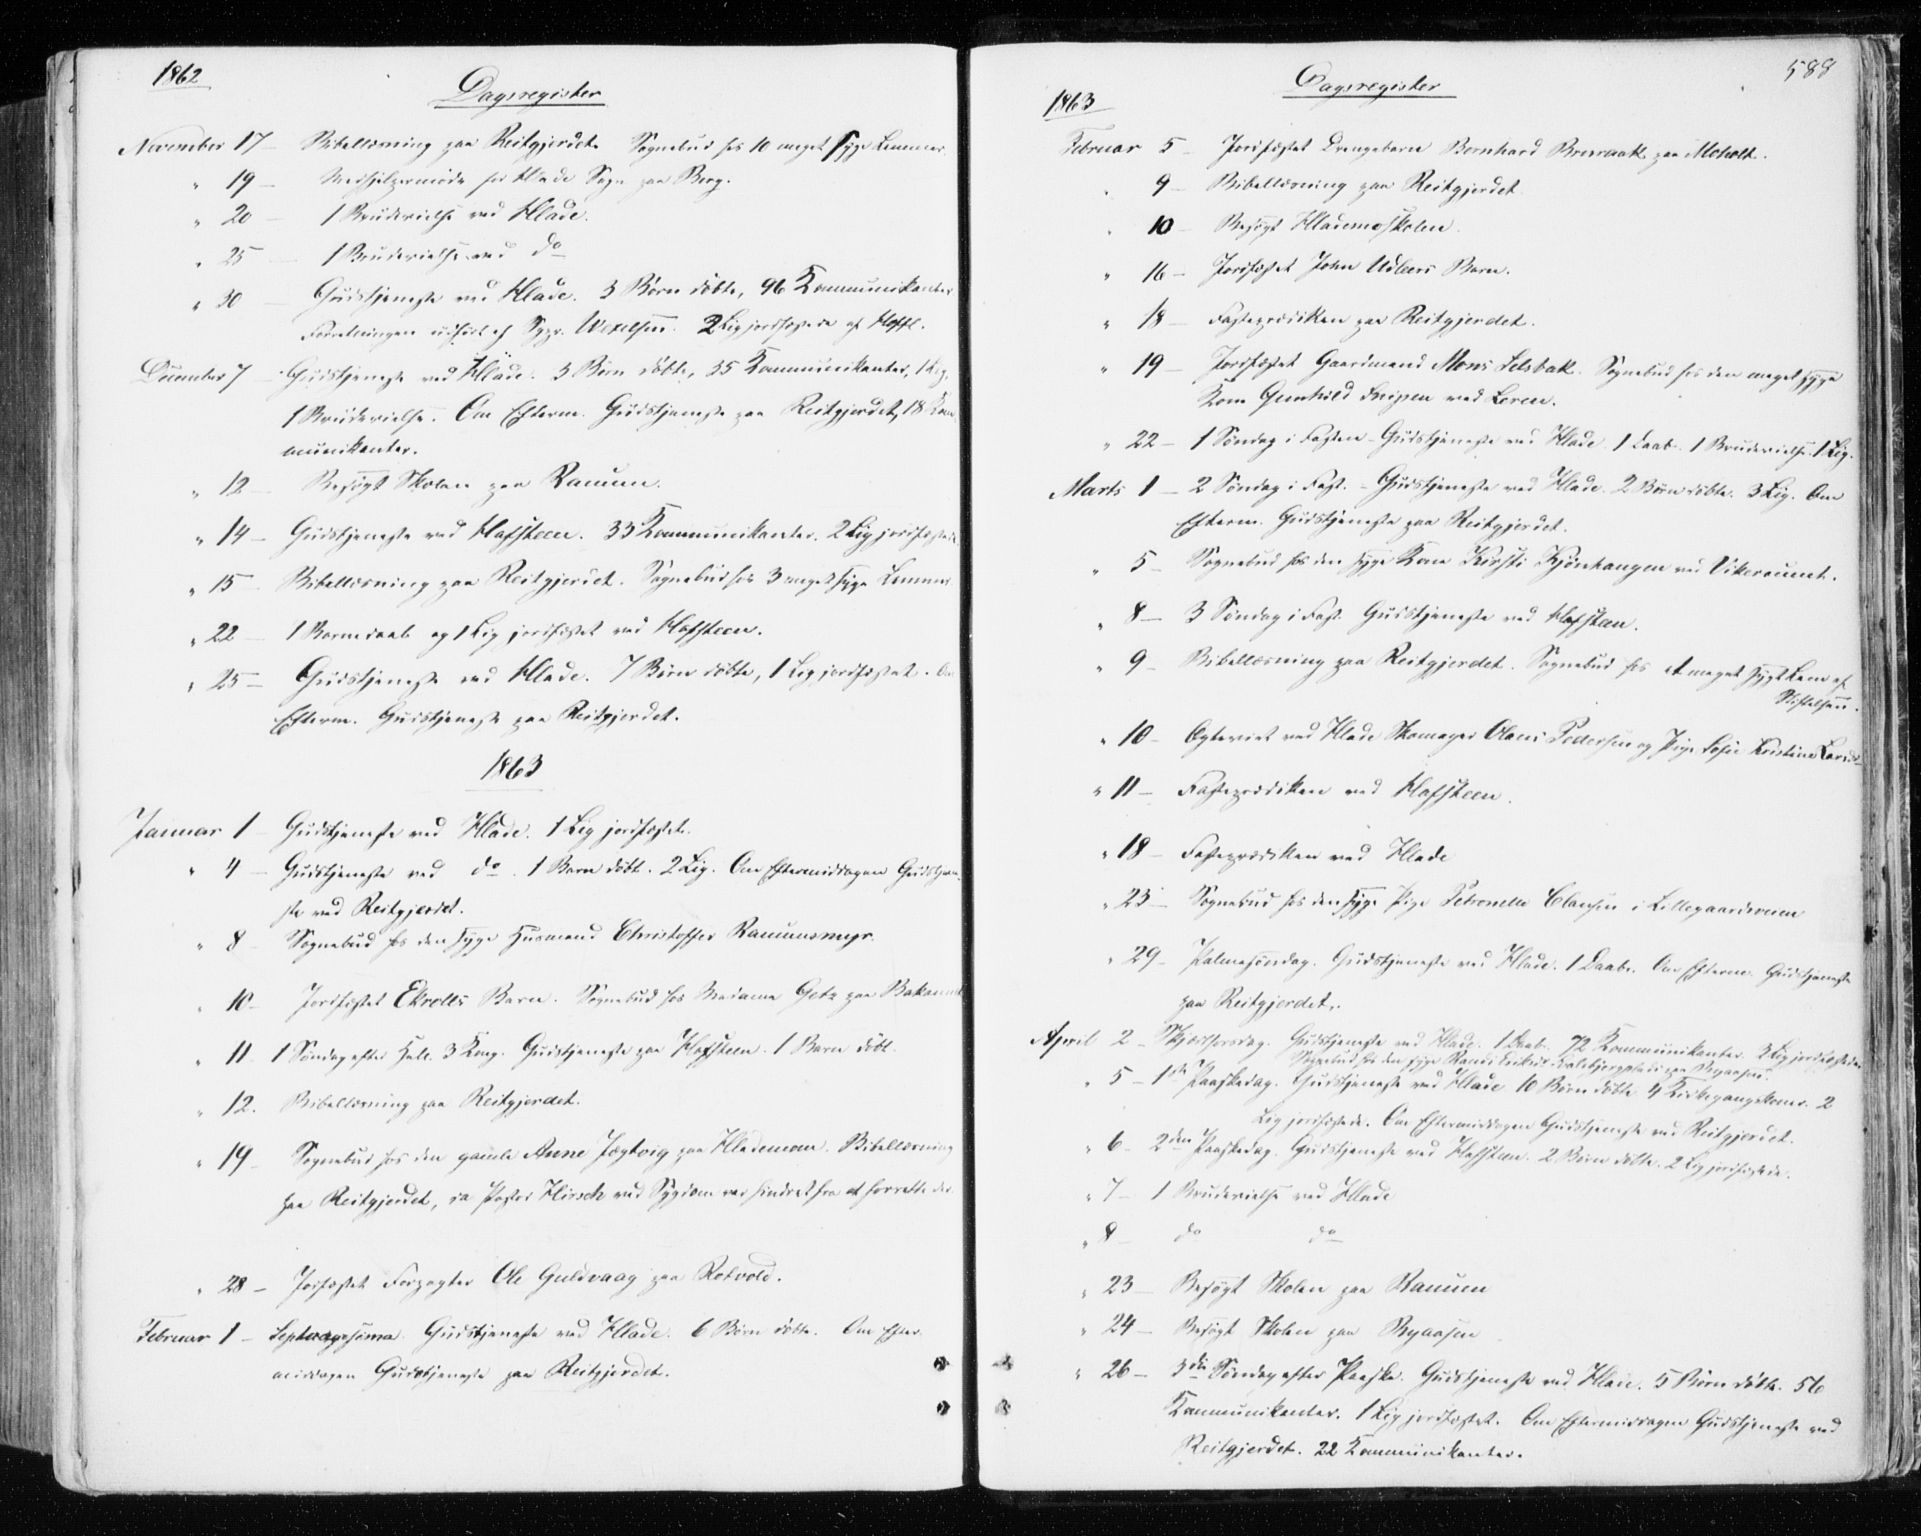 1862
Dagsregister
November 17 – Bibellæsning paa Reitgjerdet. Sognebud hos 10 meget syge Lemmer.
" 19 – Medhjelpermöde for Hlade Sogn paa Berg.
" 20 – 1 Brudevielse ved Hlade.
" 25 – 1 Brudevielse ved do
" 30 – Gudstjeneste ved Hlade. 3 Börn döbte, 96 Kommunikanter
Forretningen udfört af Sgpr. Wexelsen. 2 Lig jordfæstede af Hoffl.
December 7 – Gudstjeneste ved Hlade. 3 Börn döbte, 35 Kommunikanter, 1 Lig.
1 Brudevielse. Om Efterm. Gudstjeneste paa Reitgjerdet, 18 Kom
munikanter.
" 12 – Besögt Skolen paa Ranum.
" 14 – Gudstjeneste ved Hofsteen. 33 Kommunikanter. 2 Lig jordfæstede
" 15 – Bibellæsning paa Reitgjerdet. Sognebud hos 3 meget syge Lemmer
" 22 – 1 Barnedaab og 1 Lig jordfæstet ved Hofsteen.
" 25 – Gudstjeneste ved Hlade. 7 Börn döbte, 1 Lig jordfæstet. Om
Efterm. Gudstjeneste paa Reitgjerdet.
1863
Januar 1 – Gudstjeneste ved Hlade. 1 Lig jordfæstet.
" 4 – Gudstjeneste ved do. 1 Barn döbt. 2 Lig. Om Eftermiddagen Gudstjene-
ste ved Reitgjerdet.
" 8 – Sognebud hos den syge Husmand Christoffer Ranumsmyr.
" 10 – Jordfæstet Ekrolls Barn. Sognebud hos Madame Getz paa Bakaunet
" 11 – 1 Söndag efter Hell. 3 Kong. Gudstjeneste paa Hofsteen. 1 Barn döbt.
" 12. Bibellæsning paa Reitgjerdet.
" 19 – Sognebud hos den gamle Anne Jægtvig paa Hlademoen. Bibellæsning
paa Reitgjerdet, da Pastor Hirsch ved Sygdom var hindret fra at forrette der.
" 28 – Jordfæstet Forpagter Ole Guldvaag paa Rotvold.
Februar 1 – Septuagesima. Gudstjeneste ved Hlade. 6 Börn döbte. Om Efter-
middagen Gudstjeneste paa Reitgjerdet.
588
Dagsregister
1863
Februar 5 – Jordfæstet Drengebarn Bernhard Brevaak paa Moholt.
" 9 – Bibellæsning paa Reitgjerdet
" 10 – Besögt Hlademoskolen.
" 16 – Jordfæstet John Udleers Barn.
" 18 – Fasteprædiken paa Reitgjerdet.
" 19 – Jordfæstet Gaardmand Mons Selsbak. Sognebud hos den meget syge
Kone Gunhild Snipen ved Leren.
" 22 – 1 Söndag i Fasten – Gudstjeneste ved Hlade. 1 Daab. 1 Brudevielse. 1 Lig.
Marts 1 – 2 Söndag i Fast. – Gudstjeneste ved Hlade. 2 Börn döbte. 3 Lig. Om
Efterm. Gudstjeneste paa Reitgjerdet.
" 5 – Sognebud hos den syge Kone Kirsti Kjönhaugen ved Vikeraunet.
" 8 – 3 Söndag i Fast. Gudstjeneste ved Hofsteen.
" 9 – Bibellæsning paa Reitgjerdet. Sognebud hos et meget sygt Lem af
Stiftelsen.
" 10 – Egteviet ved Hlade Skomager Olaus Pedersen og Pige Sofie Kristine Larsd.
" 11 – Fasteprædiken ved Hofsteen.
" 18 – Fasteprædiken ved Hlade
" 23 – Sognebud hos den syge Pige Petronelle Clausen i Lillegaardsveien
" 29 – Palmesöndag. Gudstjeneste ved Hlade. 1 Daab. Om Efterm. Gudstjeneste
paa Reitgjerdet.
April 2 – Skjærthorsdag. Gudstjeneste ved Hlade. 1 Daab. 72 Kommunikanter. 2 Lig jordfæstede.
Sognebud hos den syge Randi paa Byaasen.
" 5 – 1ste Paaskedag. Gudstjeneste ved Hlade 10 Börn döbte. 4 Kirkegangskoner. 2
Lig jordfæstede. Om Eftermiddagen Gudstjeneste ved Reitgjerdet.
" 6 – 2den Paaskedag. Gudstjeneste ved Hofsteen. 2 Börn döbte. 2 Lig jordfæstede.
" 7 – 1 Brudevielse ved Hlade
" 8 – do do
" 23 Besögt Skolen paa Ranum
" 24 – Besögt Skolen paa Byaasen
" 26 – 3die Söndag efter Paaske. Gudstjeneste ved Hlade. 5 Börn döbte. 56
Kommunikanter. 1 Lig jordfæstet. Om Eftermiddagen Gudstjeneste ved
Reitgjerdet. 22 Kommunikanter.